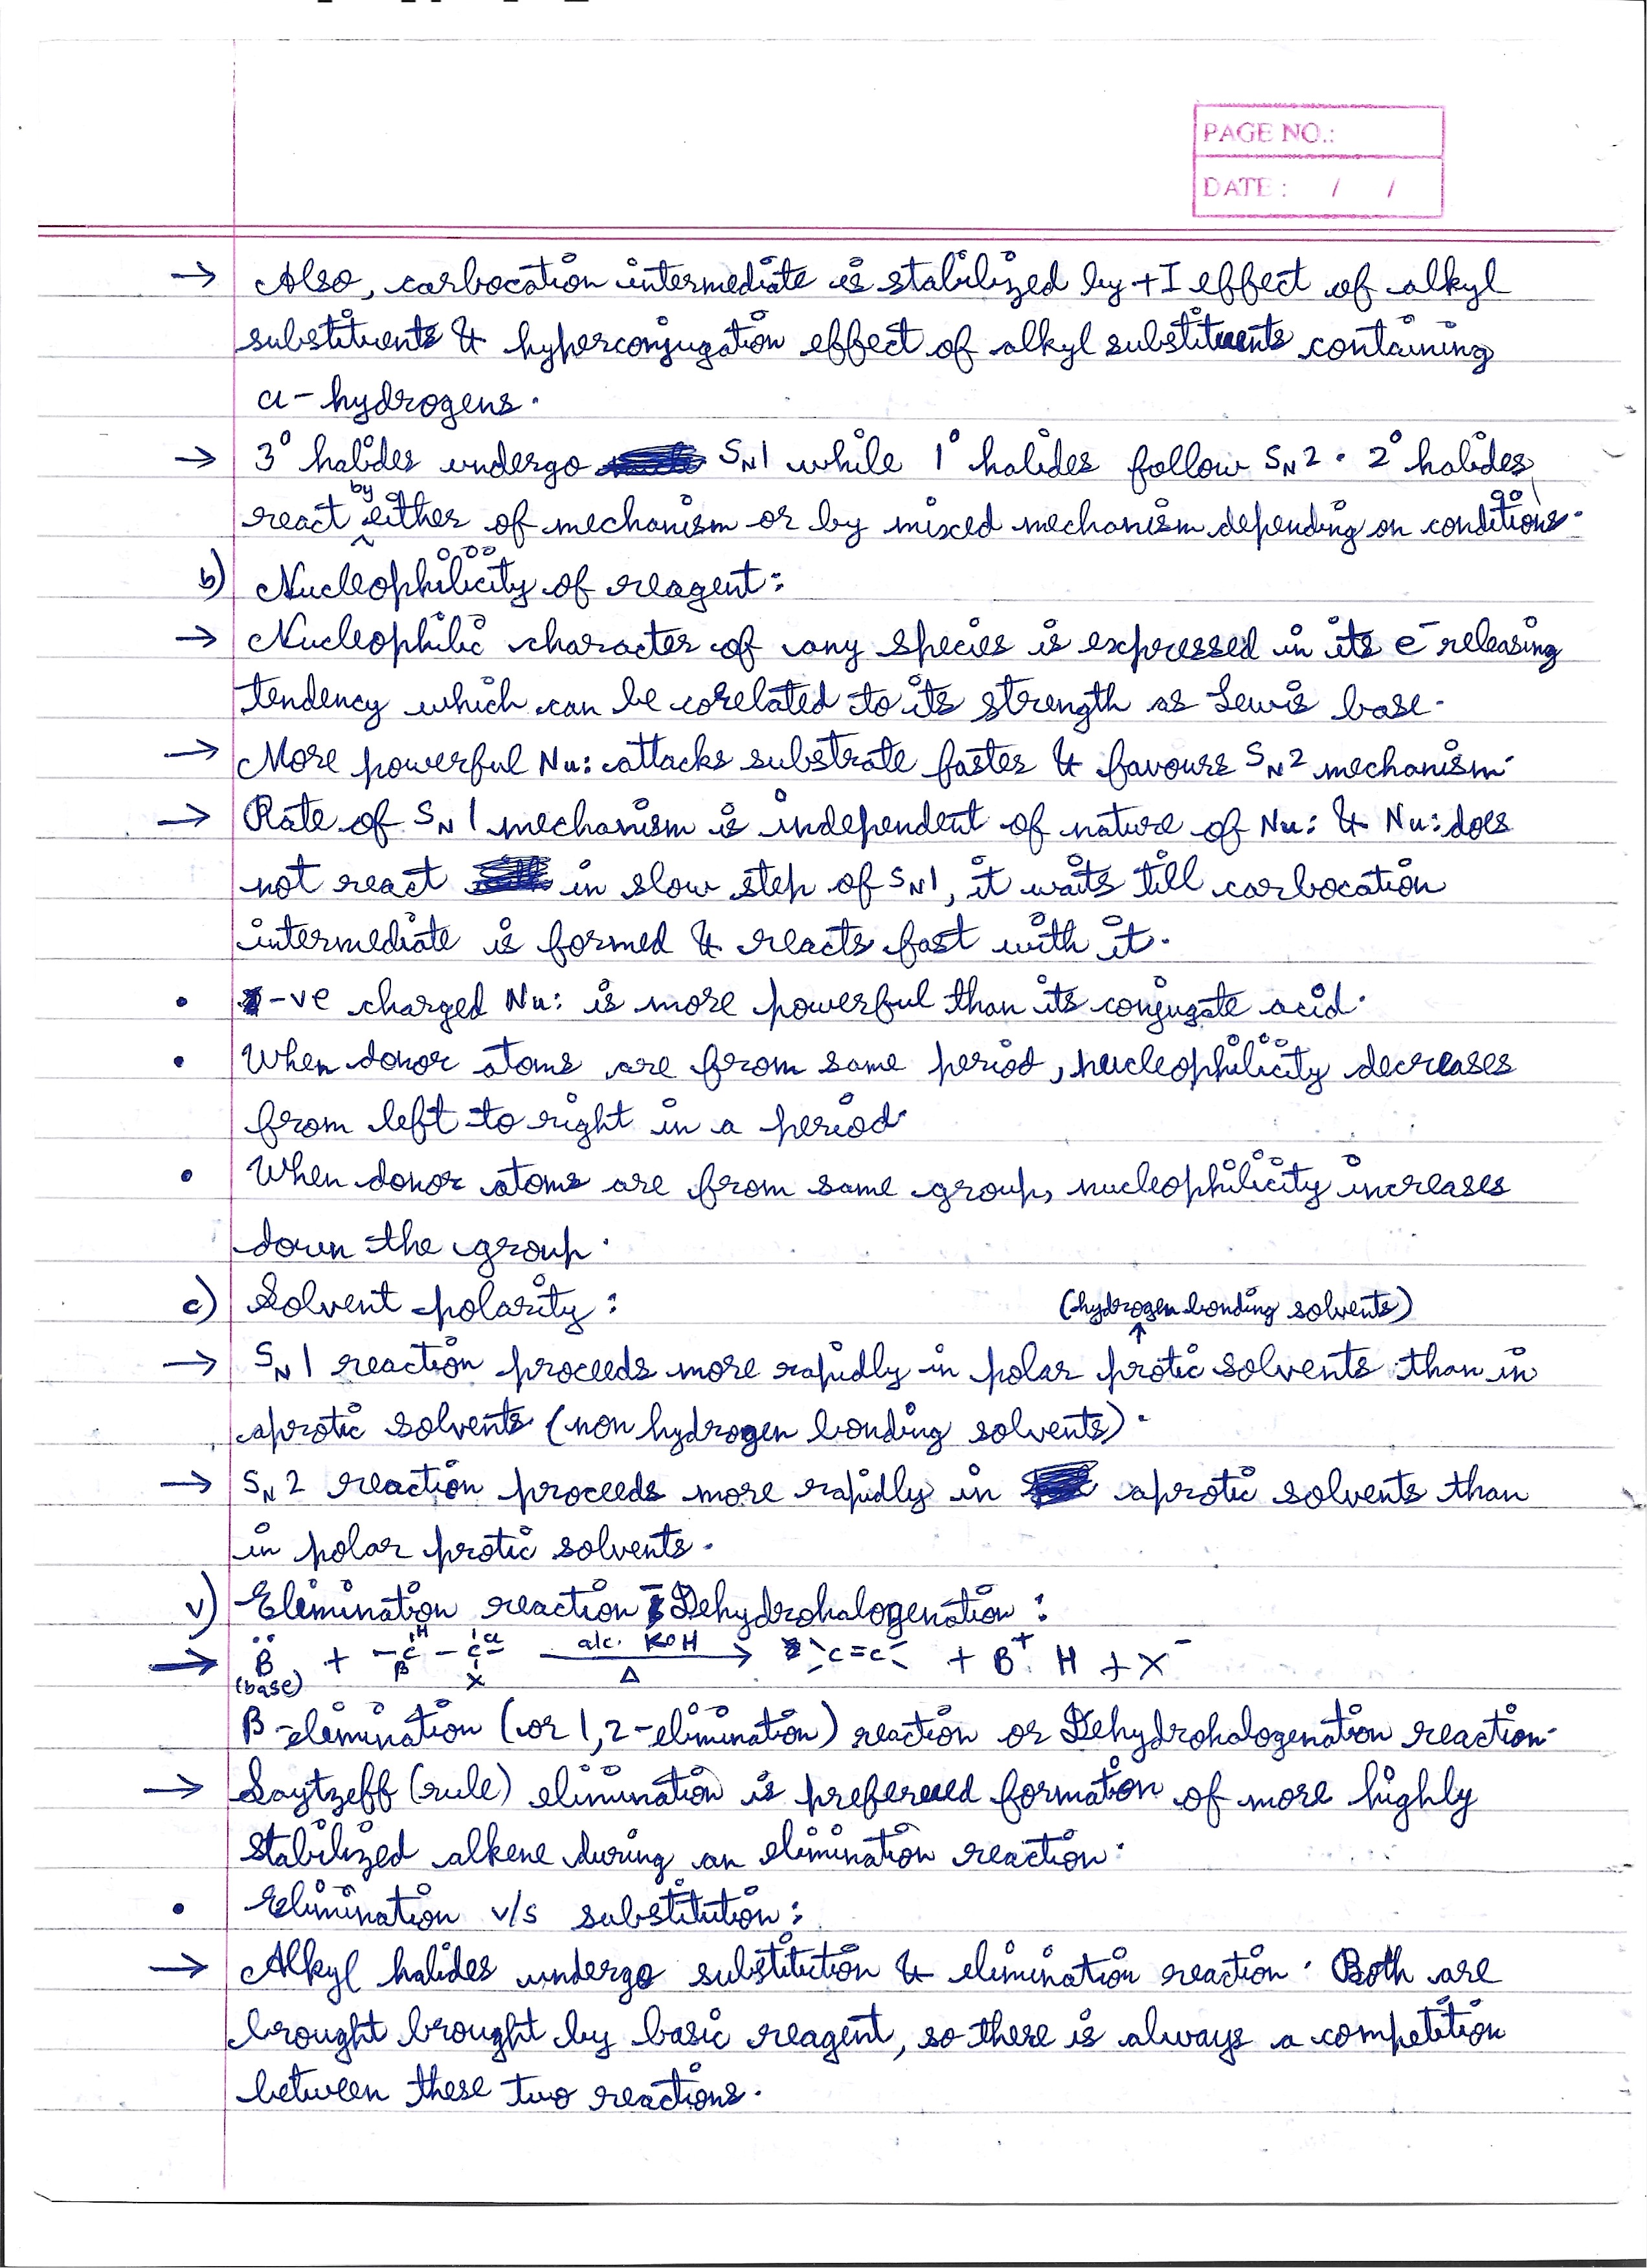 PAGE NO.:
DATE : / /
→ Also, carbocation intermediate is stabilized by +I effect of alkyl
substituents & hyperconjugation effect of alkyl substituents containing
α-hydrogens.
→ 3° halides undergo SN1 while 1° halides follow SN2. 2° halides
react by either of mechanism or by mixed mechanism depending on conditions.
b) Nucleophilicity of reagent:
→ Nucleophilic character of any species is expressed in its e⁻ releasing
tendency which can be corelated to its strength as Lewis base.
→ More powerful Nu: attacks substrate faster & favours SN2 mechanism.
→ Rate of SN1 mechanism is independent of nature of Nu: & Nu: does
not react in slow step of SN1, it waits till carbocation
intermediate is formed & reacts fast with it.
• -ve charged Nu: is more powerful than its conjugate acid.
• When donor atoms are from same period, nucleophilicity decreases
from left to right in a period.
• When donor atoms are from same group, nucleophilicity increases
down the group.
c) Solvent polarity:
(hydrogen bonding solvents)
↑
→ SN1 reaction proceeds more rapidly in polar protic solvents than in
aprotic solvents (non hydrogen bonding solvents).
→ SN2 reaction proceeds more rapidly in aprotic solvents than
in polar protic solvents.
v) Elimination reaction : Dehydrohalogenation :
→ B̈ + -C(H)- C(X)- alc. KOH → C=C + B⁺: H + X⁻
(base) β α X Δ
β-elimination (or 1,2-elimination) reaction or Dehydrohalogenation reaction.
→ Saytzeff (rule) elimination is prefereed formation of more highly
stabilized alkene during an elimination reaction.
• Elimination v/s substitution:
→ Alkyl halides undergo substitution & elimination reaction. Both are
brought brought by basic reagent, so there is always a competition
between these two reactions.